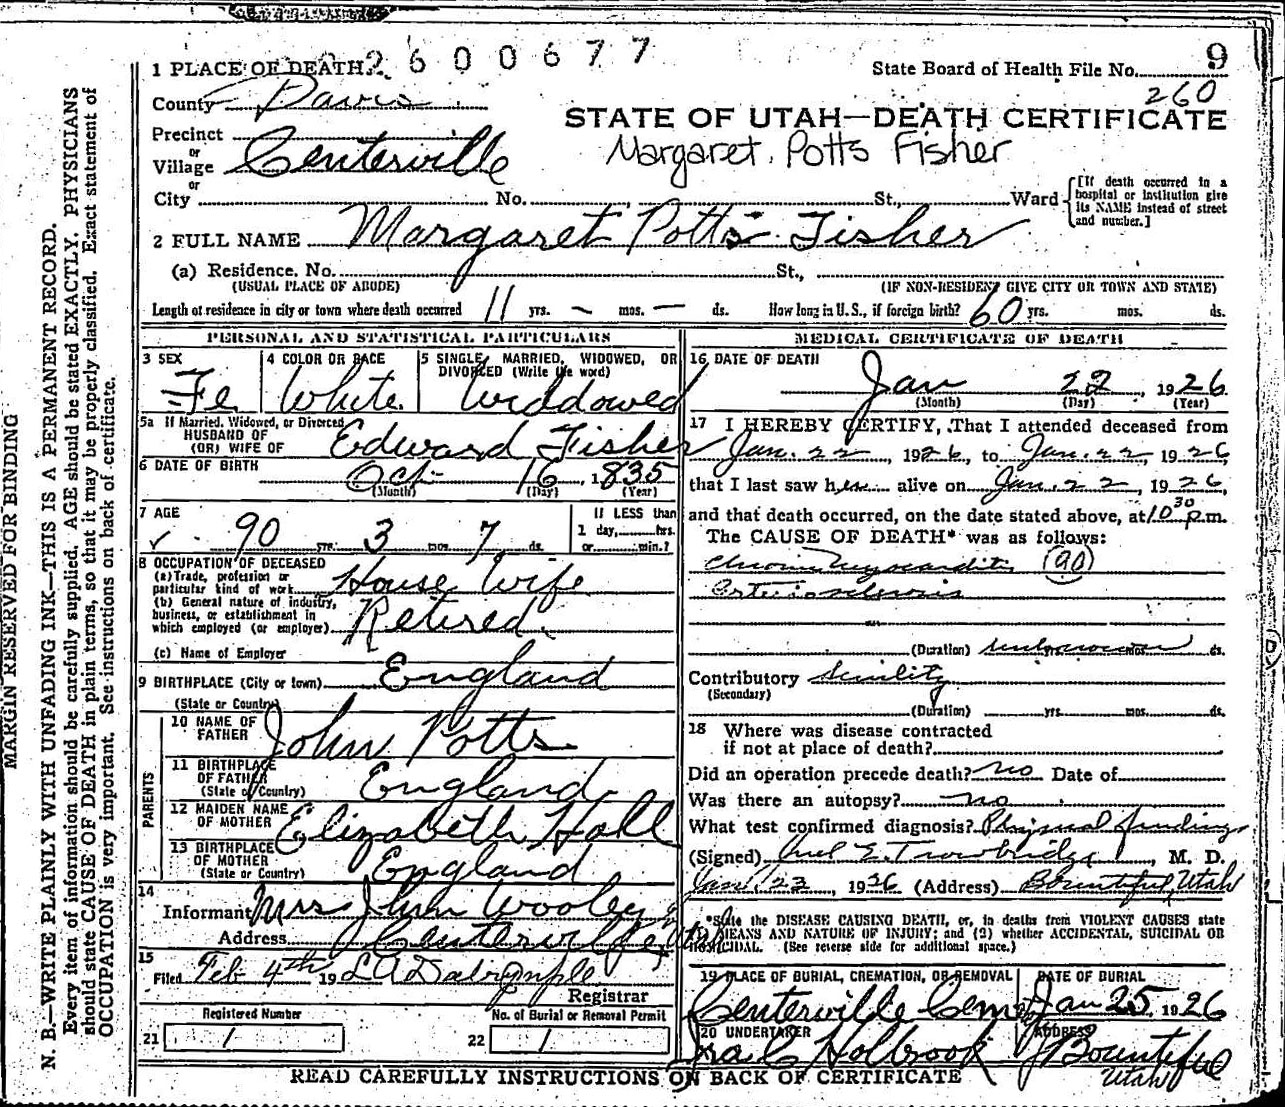 2600677
9
1 PLACE OF DEATH
State Board of Health File No.
260
County Davis
STATE OF UTAH—DEATH CERTIFICATE
Precinct
or
Village Centerville
Margaret Potts Fisher
or
City No. St., Ward
[If death occurred in a
hospital or institution give
its NAME instead of street
and number.]
2 FULL NAME Margaret Potts Fisher
(a) Residence, No. St.,
(USUAL PLACE OF ABODE) (IF NON-RESIDENT GIVE CITY OR TOWN AND STATE)
Length of residence in city or town where death occurred 11 yrs. — mos. — ds. How long in U.S., if foreign birth? 60 yrs. mos. ds.
PERSONAL AND STATISTICAL PARTICULARS
3 SEX
Fe.
4 COLOR OR RACE
White
5 SINGLE, MARRIED, WIDOWED, OR
DIVORCED (Write the word)
Widdowed
5a If Married, Widowed, or Divorced
HUSBAND OF
(OR) WIFE OF Edward Fisher
6 DATE OF BIRTH
Oct 16, 1835
(Month) (Day) (Year)
7 AGE
90 yrs. 3 mos. 7 ds.
If LESS than
1 day, hrs.
or min.?
8 OCCUPATION OF DECEASED
(a) Trade, profession or
particular kind of work House Wife
(b) General nature of industry,
business, or establishment in
which employed (or employer) Retired
(c) Name of Employer
9 BIRTHPLACE (City or town) England
(State or Country)
PARENTS
10 NAME OF
FATHER John Potts
11 BIRTHPLACE
OF FATHER England
(State or Country)
12 MAIDEN NAME
OF MOTHER Elizabeth Hall
13 BIRTHPLACE
OF MOTHER England
(State or Country)
14
Informant Mrs John Wooley
Address Centerville Utah
15
Filed Feb 4th 19 L A Dalrymple
Registrar
Registered Number No. of Burial or Removal Permit
21 1 22 1
MEDICAL CERTIFICATE OF DEATH
16 DATE OF DEATH
Jan 22, 1926
(Month) (Day) (Year)
17 I HEREBY CERTIFY, That I attended deceased from
Jan. 22, 1926, to Jan. 22, 1926,
that I last saw her alive on Jan. 22, 1926,
and that death occurred, on the date stated above, at 10 30 p.m.
The CAUSE OF DEATH* was as follows:
Chronic Myocarditis (90)
Arteriosclerosis
(Duration) unknown mos. ds.
Contributory Senility
(Secondary)
(Duration) yrs. mos. ds.
18 Where was disease contracted
if not at place of death?
Did an operation precede death? no Date of
Was there an autopsy? no
What test confirmed diagnosis? Physical findings
(Signed) Trowbridge, M. D.
Jan. 23, 1926 (Address) Bountiful, Utah
*State the DISEASE CAUSING DEATH, or, in deaths from VIOLENT CAUSES state
(1) MEANS AND NATURE OF INJURY; and (2) whether ACCIDENTAL, SUICIDAL OR
HOMICIDAL. (See reverse side for additional space.)
19 PLACE OF BURIAL, CREMATION, OR REMOVAL
Centerville Cem
DATE OF BURIAL
Jan 25, 1926
20 UNDERTAKER
Ira C Holbrook
ADDRESS
Bountiful
Utah
READ CAREFULLY INSTRUCTIONS ON BACK OF CERTIFICATE
MARGIN RESERVED FOR BINDING
N. B.—WRITE PLAINLY WITH UNFADING INK—THIS IS A PERMANENT RECORD.
Every item of information should be carefully supplied. AGE should be stated EXACTLY. PHYSICIANS
should state CAUSE OF DEATH in plain terms, so that it may be properly classified. Exact statement of
OCCUPATION is very important. See instructions on back of certificate.